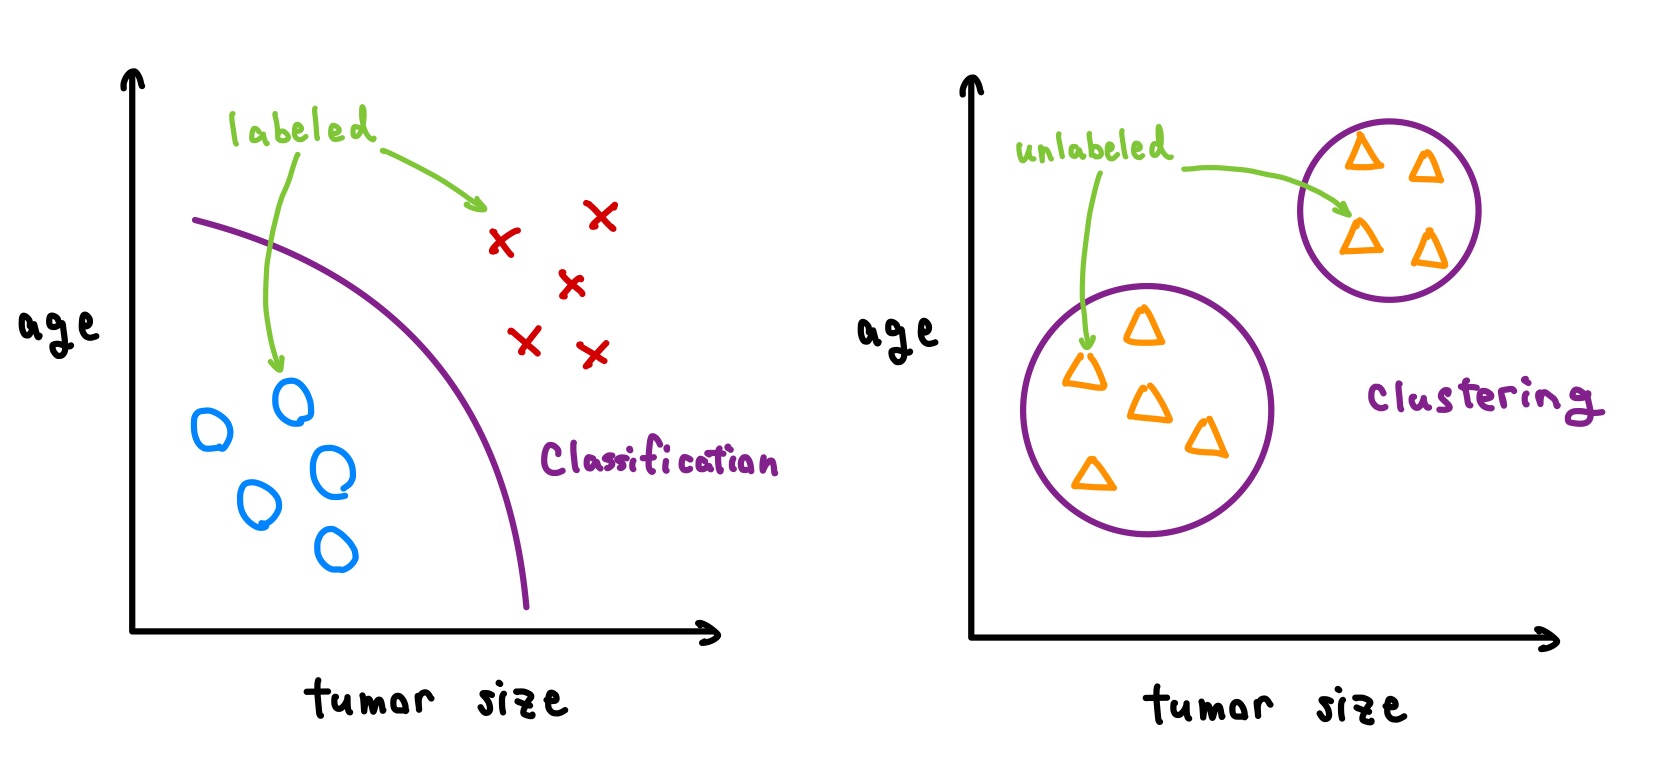 labeled
age
Classification
tumor size
unlabeled
age
Clustering
tumor size